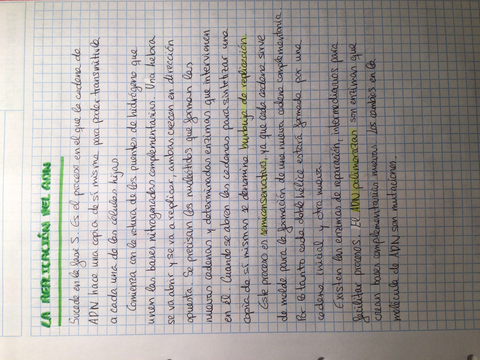 LA REPLICACIÓN DEL ADN
Sucede en la fase S. Es el proceso en el que la cadena de
ADN hace una copia de si misma para poder transmitirla
a cada una de las células hijas.
Comienza con la rotura de los puentes de hidrógeno que
unen las bases nitrogenadas complementarias. Una hebra
se va abrir y se va a replicar, ambas crecen en dirección
opuesta. Se precisan los nucleótidos que forman las
nuevas cadenas y determinadas enzimas que intervienen
en el Cuando se abren las cadenas para sintetizar una
copia de si mismas se denomina burbuja de replicación.
Este proceso es semiconservativo, ya que cada cadena sirve
de molde para la formación de una nueva cadena complementaria.
Por lo tanto cada doble hélice estará formada por una
cadena inicial y otra nueva
Existen las enzimas de reparación, intermediarios para
facilitar procesos. El ADN polimerasas son enzimas que
crean bases complementarias nuevas. Los cambios en la
molécula de ADN son mutaciones